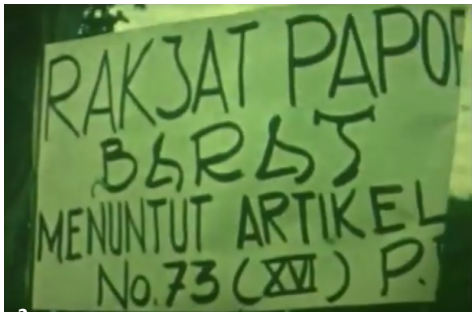 RAKJAT PAPOE
BARAT
MENUNTUT ARTIKEL
No. 73 (XVI) P.